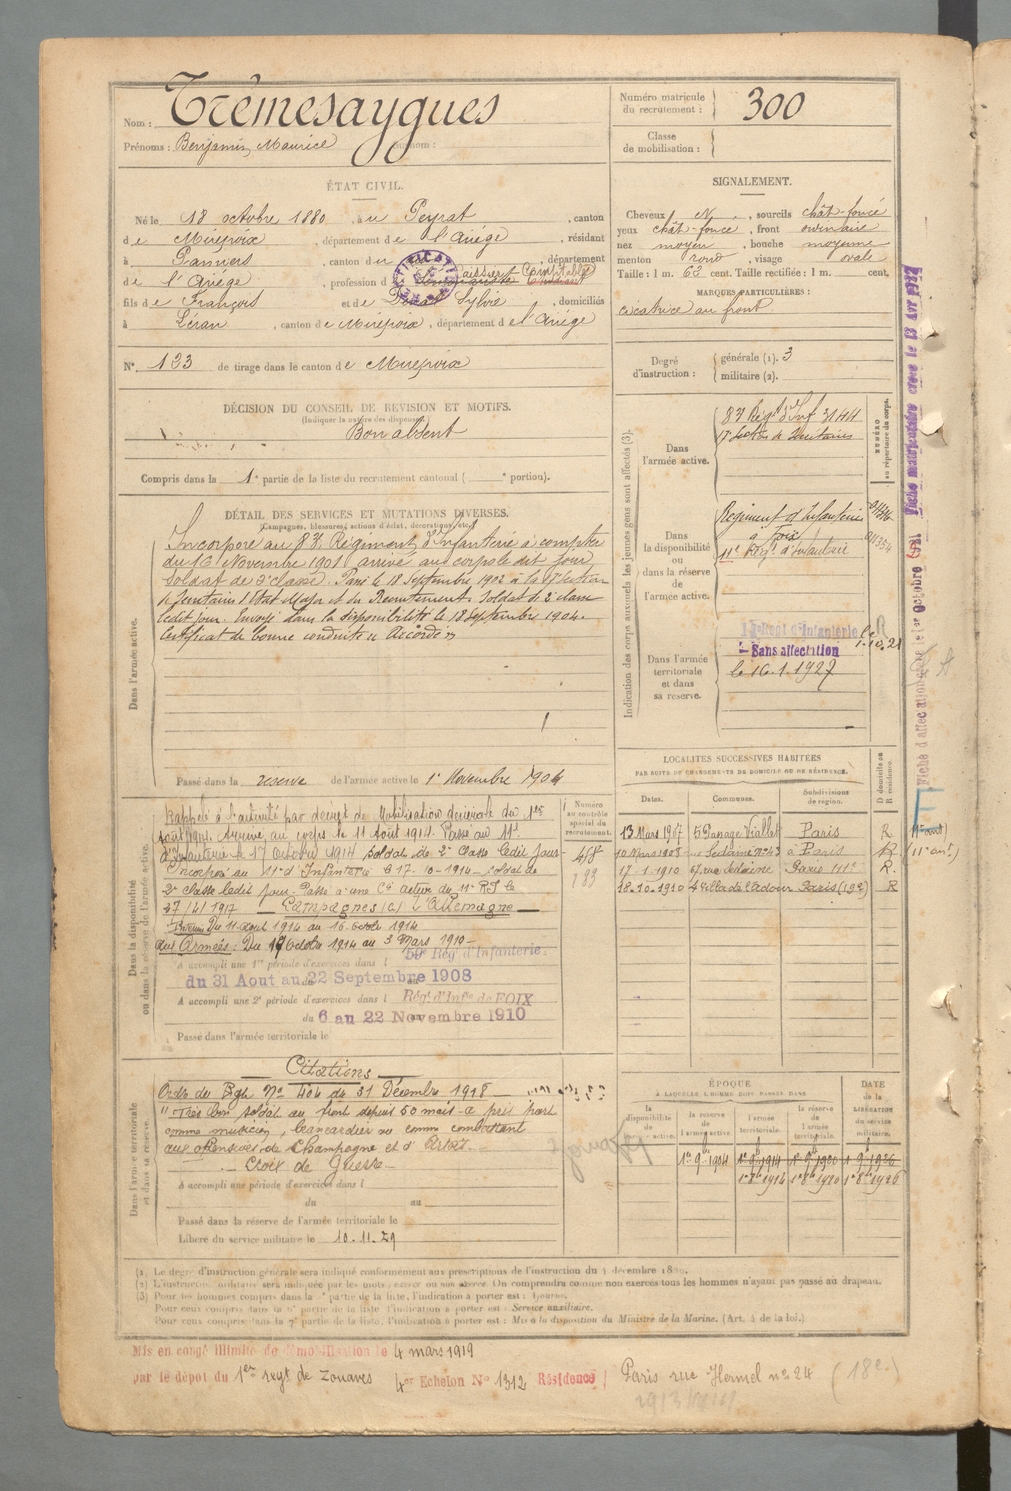 Nom : Trémesaygues
Prénoms : Benjamin, Maurice
Numéro matricule du recrutement : 300
Classe de mobilisation :
ÉTAT CIVIL.
Né le 18 octobre 1880, à u Peyrat, canton
de Mirepoix, département de l'Ariège, résidant
à Pamiers, canton du dit, département
de l'Ariège, profession d Caissier Comptable
fils de François et de Sylvie, domiciliés
à Léran, canton de Mirepoix, département de l'Ariège
N° 123 de tirage dans le canton de Mirepoix
SIGNALEMENT.
Cheveux N, sourcils chât-foncé
yeux chât-foncé, front ordinaire
nez moyen, bouche moyenne
menton rond, visage ovale
Taille : 1 m. 62 cent. Taille rectifiée : 1 m. cent.
MARQUES PARTICULIÈRES :
cicatrice au front
Degré d'instruction : générale (1). 3
militaire (2).
DÉCISION DU CONSEIL DE REVISION ET MOTIFS.
(Indiquer la nature des dispenses)
Bon absent
Compris dans la 1e partie de la liste du recrutement cantonal ( e portion).
DÉTAIL DES SERVICES ET MUTATIONS DIVERSES.
(Campagnes, blessures, actions d'éclat, décorations, etc.)
Dans l'armée active.
Incorporé au 83e Régiment d'Infanterie à compter
du 16 Novembre 1901 arrivé au corps le dit jour
Soldat de 2e classe. Passé le 18 Septembre 1902 à la 17e Section
de Secrétaires d'Etat Major et du Recrutement. Soldat de 2e classe
ledit jour. Envoyé dans la disponibilité le 18 Septembre 1904.
Certificat de bonne conduite "Accordé"
Passé dans la réserve de l'armée active le 1er Novembre 1904
Indication des corps auxquels les jeunes gens sont affectés (3).
NUMÉRO au répertoire du corps.
Dans l'armée active.
83e Régt d'Inf 3144
17e Section de Secrétaires
Dans la disponibilité ou dans la réserve de l'armée active.
Régiment d'Infanterie
à Foix
11e Régt d'Infanterie
Dans l'armée territoriale et dans sa réserve.
Régt d'Infanterie
Sans affectation
1.10.21
le 16.1.1927
LOCALITÉS SUCCESSIVES HABITÉES
PAR SUITE DE CHANGEMENTS DE DOMICILE OU DE RÉSIDENCE.
Dates. Communes. Subdivisions de région. D domicile ou R résidence.
13 Mars 1907 5 Passage Viallet Paris R
10 Mars 1908 rue Sedaine n°43 à Paris R (11e arrt)
17-1-1910 67, rue Sedaine Paris 11e R.
18-10-1910 4 Villa de l'adour Paris (19e) R
Dans la disponibilité ou dans la réserve de l'armée active.
Numéro au contrôle spécial du recrutement.
Rappelé à l'activité par décret de Mobilisation Générale du 1er
Août 1914. Arrivé au corps le 11 Août 1914. Passé au 11e
d'Infanterie le 17 Octobre 1914 soldat de 2e Classe ledit jour
Incorporé au 11e d'Infanterie le 17-10-1914 - soldat de
2e classe ledit jour. Passé à une Cie active du 11e RI le
27/4/1917 — Campagnes c/ l'Allemagne —
Intérieur Du 11 août 1914 au 16 octobre 1914
aux Armées : Du 17 Octobre 1914 au 3 Mars 1919 -
A accompli une 1re période d'exercices dans l 59e Rég. d'Infanterie.
du 31 Aout au 22 Septembre 1908
A accompli une 2e période d'exercices dans l Régt d'Infie de FOIX
du 6 au 22 Novembre 1910
Passé dans l'armée territoriale le
Dans l'armée territoriale et dans sa réserve.
Citations
Ordre du Rgt N° 404 du 31 Décembre 1918
"Très bon soldat au front depuis 50 mois - a pris part
comme musicien, brancardier ou comme combattant
aux offensives de Champagne et d'Artois.
Croix de Guerre
A accompli une période d'exercices dans l
du au
Passé dans la réserve de l'armée territoriale le
Libéré du service militaire le 10.11.29
ÉPOQUE
À LAQUELLE L'HOMME DOIT PASSER DANS
la disponibilité de l'armée active. la réserve de l'armée active l'armée territoriale. la réserve de l'armée territoriale.
DATE de la LIBÉRATION du service militaire.
1er 9bre 1904 1er 9bre 1914 1er 9bre 1920 1er 9bre 1926
1er 8bre 1914 1er 8bre 1920 1er 8bre 1926
(1) Le degré d'instruction générale sera indiqué conformément aux prescriptions de l'instruction du 4 décembre 1889.
(2) L'instruction militaire sera indiquée par les mots : exercé ou non exercé. On comprendra comme non exercés tous les hommes n'ayant pas passé au drapeau.
(3) Pour les hommes compris dans la 1e partie de la liste, l'indication à porter est : Ajourné.
Pour ceux compris dans la 5e partie de la liste, l'indication à porter est : Service auxiliaire.
Pour ceux compris dans la 7e partie de la liste, l'indication à porter est : Mis à la disposition du Ministre de la Marine. (Art. 4 de la loi.)
Mis en congé illimité de démobilisation le 4 mars 1919
par le dépôt du 1er regt de Zouaves 4er Echelon N° 1312 Résidence : Paris rue Hermel n° 24 (18e.)